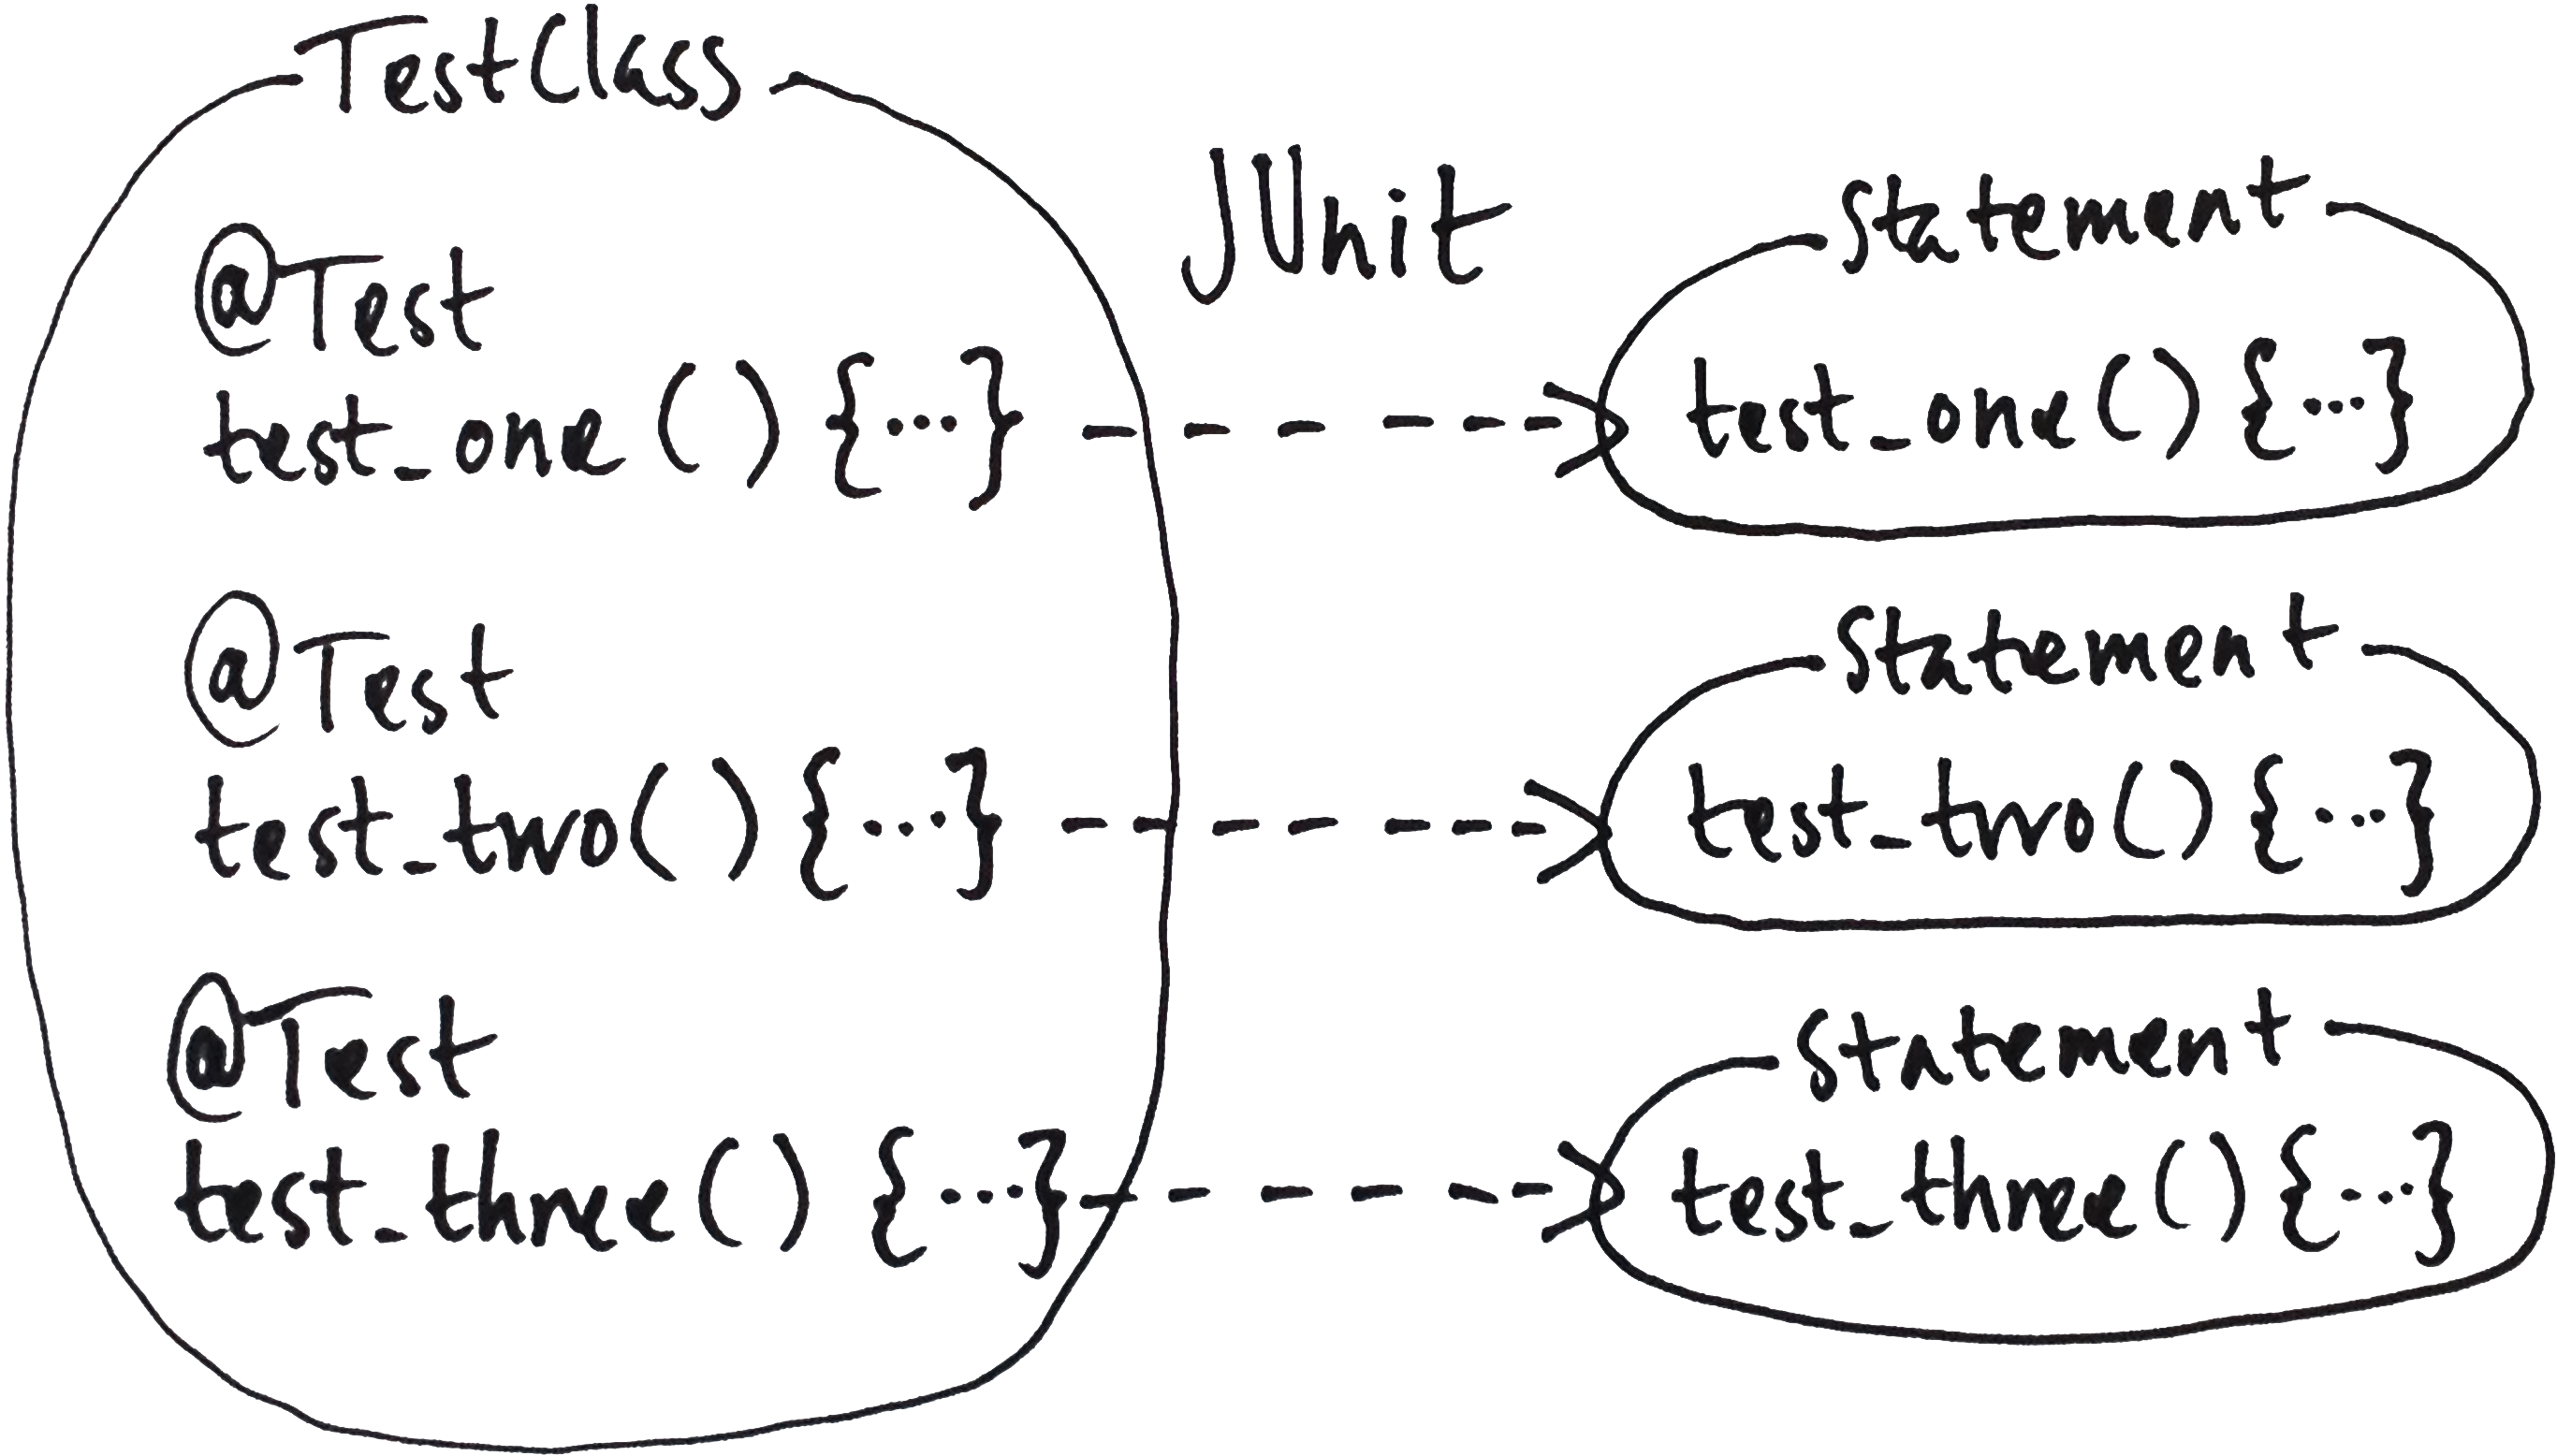 TestClass
@Test
test_one () {...}
@Test
test_two() {...}
@Test
test_three() {...}
JUnit
Statement
test_one() {...}
Statement
test_two() {...}
Statement
test_three() {...}